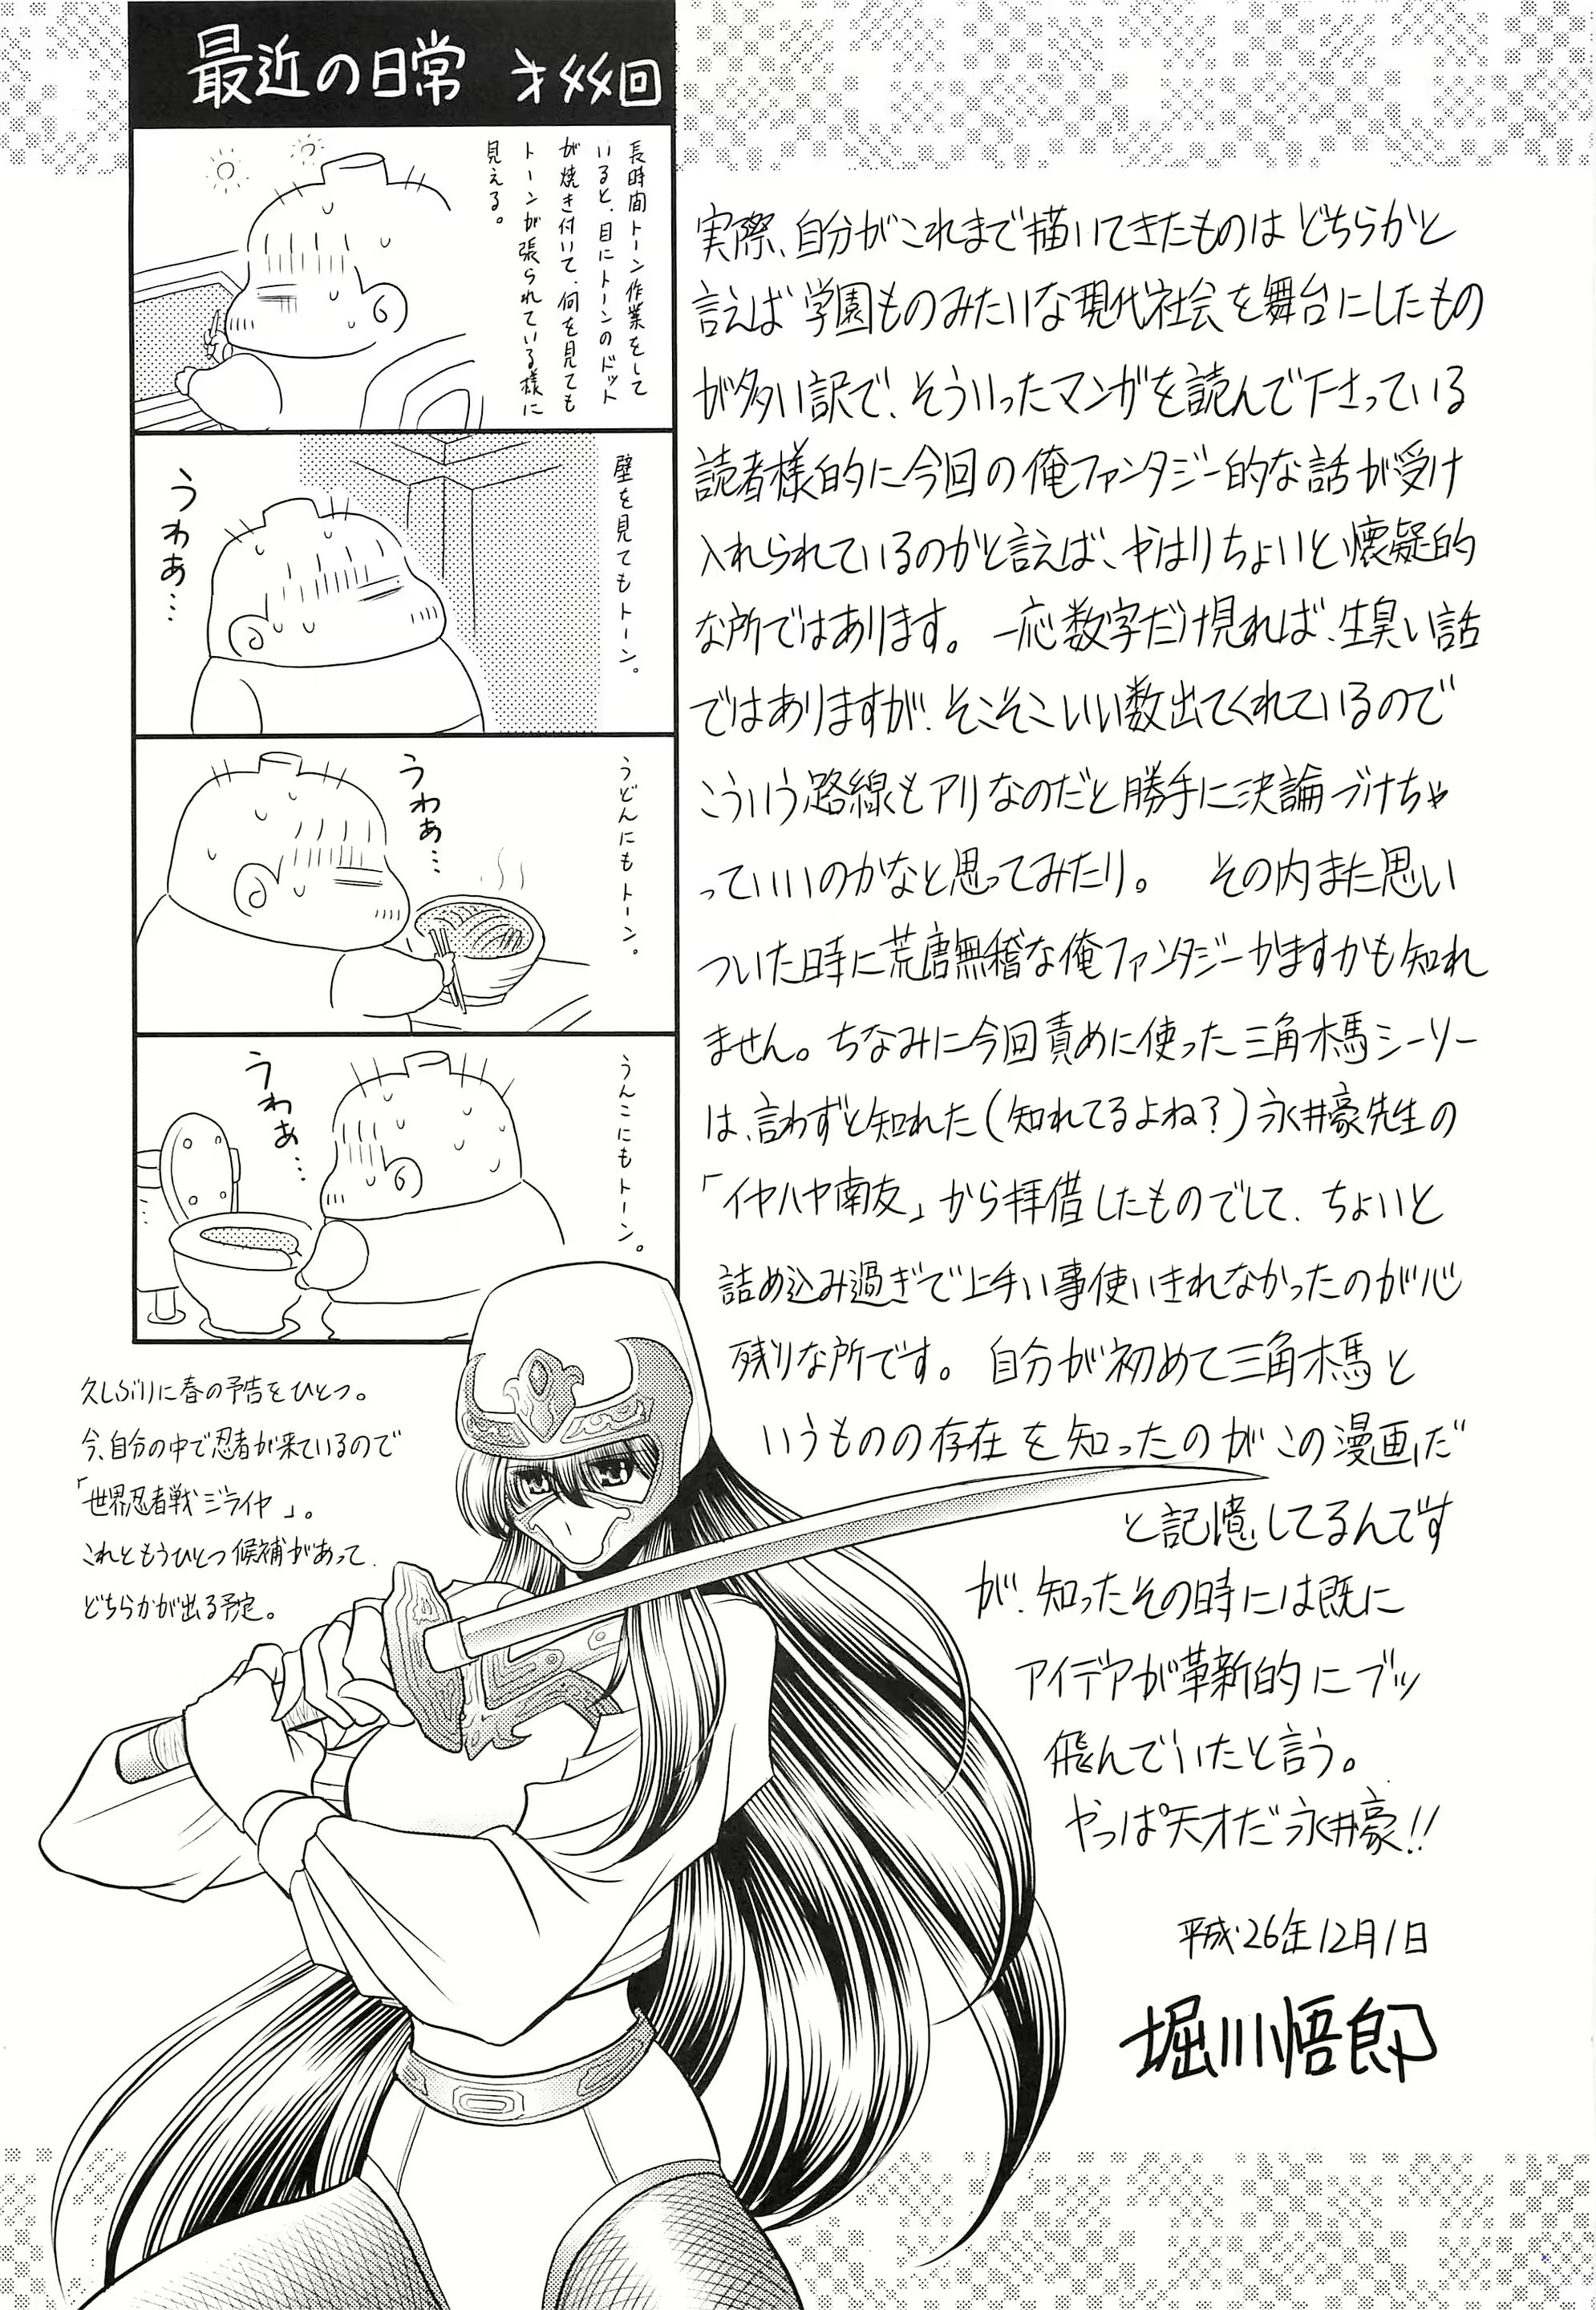 最近の日常 才44回
長時間トーン作業をして
いると、目にトーンのドット
が焼き付いて、何を見ても
トーンが張られている様に
見える。
壁を見てもトーン。
うわあ…
うどんにもトーン。
うわあ…
うんこにもトーン。
うわあ…
実際、自分がこれまで描いてきたものは どちらかと
言えば 学園ものみたいな現代社会を舞台にしたもの
が多い訳で、そういったマンガを読んで下さっている
読者様的に今回の俺ファンタジー的な話が受け
入れられているのかと言えば、やはりちょいと懐疑的
な所ではあります。 一応数字だけ見れば、生臭い話
ではありますが、そこそこいい数出てくれているので
こういう路線もアリなのだと勝手に決論づけちゃ
っていいのかなと思ってみたり。 その内また思い
ついた時に荒唐無稽な俺ファンタジーかますかも知れ
ません。ちなみに今回責めに使った三角木馬シーソー
は、言わずと知れた(知れてるよね?)永井豪先生の
「イヤハヤ南友」から拝借したものでして、ちょいと
詰め込み過ぎで上手い事使いきれなかったのが心
残りな所です。 自分が初めて三角木馬と
いうものの存在を知ったのがこの漫画だ
と記憶してるんです
が、知ったその時には既に
アイデアが革新的にブッ
飛んでいたと言う。
やっぱ天才だ永井豪!!
平成26年12月1日
堀川悟郎
久しぶりに春の予告をひとつ。
今、自分の中で忍者が来ているので
「世界忍者戦ジライヤ」。
これともうひとつ候補があって、
どちらかが出る予定。